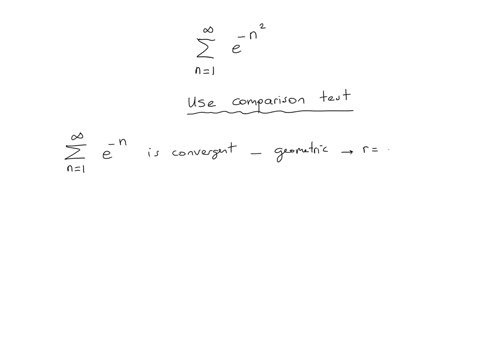 ∞
∑ e^{-n^2}
n=1
Use comparison test
∞
∑ e^{-n} is convergent – geometric → r=
n=1